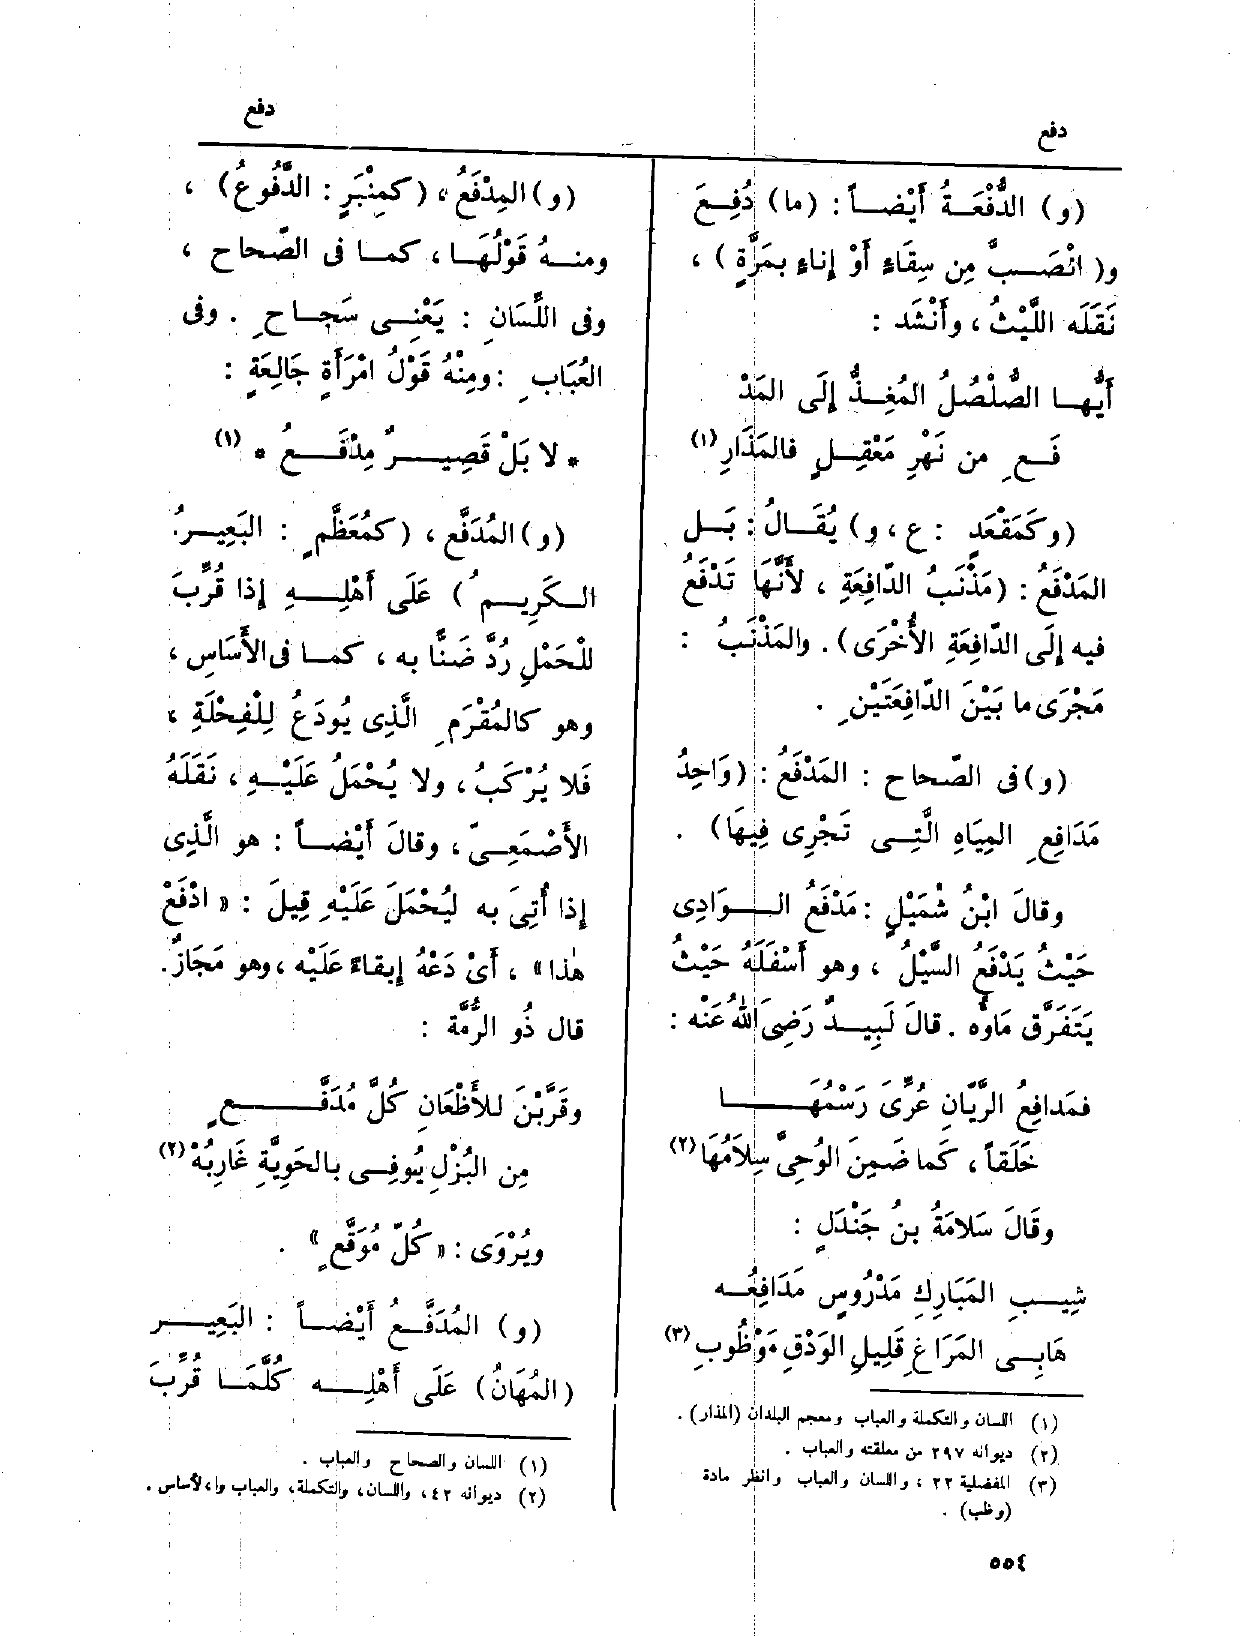 دفع
دفع
(و) الدُّفْعَـةُ أَيْضـاً : (ما) دُفِـعَ
و( انْصَـبَّ مِن سِقَاءِ أَوْ إناءِ بمَرَّةٍ ) ،
نَقَلَه اللَّيْثُ ، وأَنْشَد :
أَيُّهـا الصُّلْصُلُ المُغِـذُّ إِلَى المَدْ
فَـعِ من نَهْرِ مَعْقِـلٍ فالمَذَارِ (١)
(وكَمَقْعَدٍ : ع ، و) يُقَـالُ : بَـل
المَدْفَعُ : (مَذْنَبُ الدّافِعَةِ ، لأَنَّهَا تَدْفَعُ
فيه إِلَى الدّافِعَةِ الأُخْرَى) . والمَذْنَبُ :
مَجْرَى ما بَيْنَ الدّافِعَتَيْنِ .
(و)فى الصّحاح : المَدْفَعُ : (وَاحِدُ
مَدَافِعِ المِيَاهِ الَّتِـى تَجْرِى فِيهَا) .
وقالَ ابْنُ شُمَيْلٍ : مَدْفَعُ الـوَادِى
حَيْثُ يَدْفَعُ السَّيْلُ ، وهو أَسْفَلَهُ حَيْثُ
يَتَفَرَّق مَاؤُه . قالَ لَبِيـدٌ رَضِىَ اللهُ عَنْه :
فمَدافِعُ الرَّيّانِ عُرِّىَ رَسْمُهَـا
خَلَقاً ، كَما ضَمِنَ الوُحِىَّ سِلاَمُهَا (٢)
وقَالَ سَلامَةُ بنُ جَنْدَلٍ :
شِيـبِ المَبَارِكِ مَدْرُوسٍ مَدَافِعُـه
هَابِـى المَرَاغِ قَلِيلِ الوَدْقِ مَوْظُوبِ (٣)
(١) اللسان والتكملة والعباب ومعجم البلدان (المذار) .
(٢) ديوانه ٢٩٧ من معلقته والعباب .
(٣) المفضلية ٢٢ ، واللسان والعباب وانظر مادة
(وظب) .
(و) المِدْفَعُ ، (كمِنْبَرٍ : الدَّفُوعُ) ،
ومنـهُ قَوْلُهَـا ، كمـا فى الصّحاح ،
وفى اللِّسَانِ : يَعْنِـى سَجـاحِ . وفى
العُبَابِ : ومِنْهُ قَوْلُ امْرَأَةٍ جَالِعَةٍ :
* لا بَلْ قَصِيـرٌ مِدْفَـعُ * (١)
(و) المُدَفَّع ، (كمُعَظَّمٍ : البَعِيـرُ
الـكَرِيـم ) عَلَى أَهْلِـهِ إذا قُرِّبَ
للحَمْلِ رُدَّ ضَنًّا به ، كمـا فى الأَسَاسِ ،
وهو كالمُقْرَمِ الَّذِى يُودَعُ لِلْفِحْلَةِ ،
فَلا يُرْكَبُ ، ولا يُحْمَلُ عَلَيْـهِ ، نَقَلَهُ
الأَصْمَعِـىّ ، وقالَ أَيْضـاً : هو الَّذِى
إذا أُتِىَ به ليُحْمَلَ عَلَيْهِ قِيلَ : « ادْفَعْ
هٰذا» ، أَىْ دَعْهُ إبقاءً عَلَيْه ، وهو مَجَازٌ .
قال ذُو الرُّمَّة :
وقَرَّبْنَ للأَظْعَانِ كُلَّ مُدَفَّـعٍ
مِن البُزْلِ يُوفِـى بالحَوِيَّةِ غَارِبُهْ (٢)
ويُرْوَى : « كُلّ مُوَقَّعٍ » .
(و) المُدَفَّـعُ أَيْضـاً : البَعِيـر
(المُهَانُ) عَلَى أَهْلِـه كُلَّمَـا قُرِّبَ
(١) اللسان والصحاح والعباب .
(٢) ديوانه ٤٢ ، واللسان ، والتكملة ، والعباب والأساس .
٥٥٤